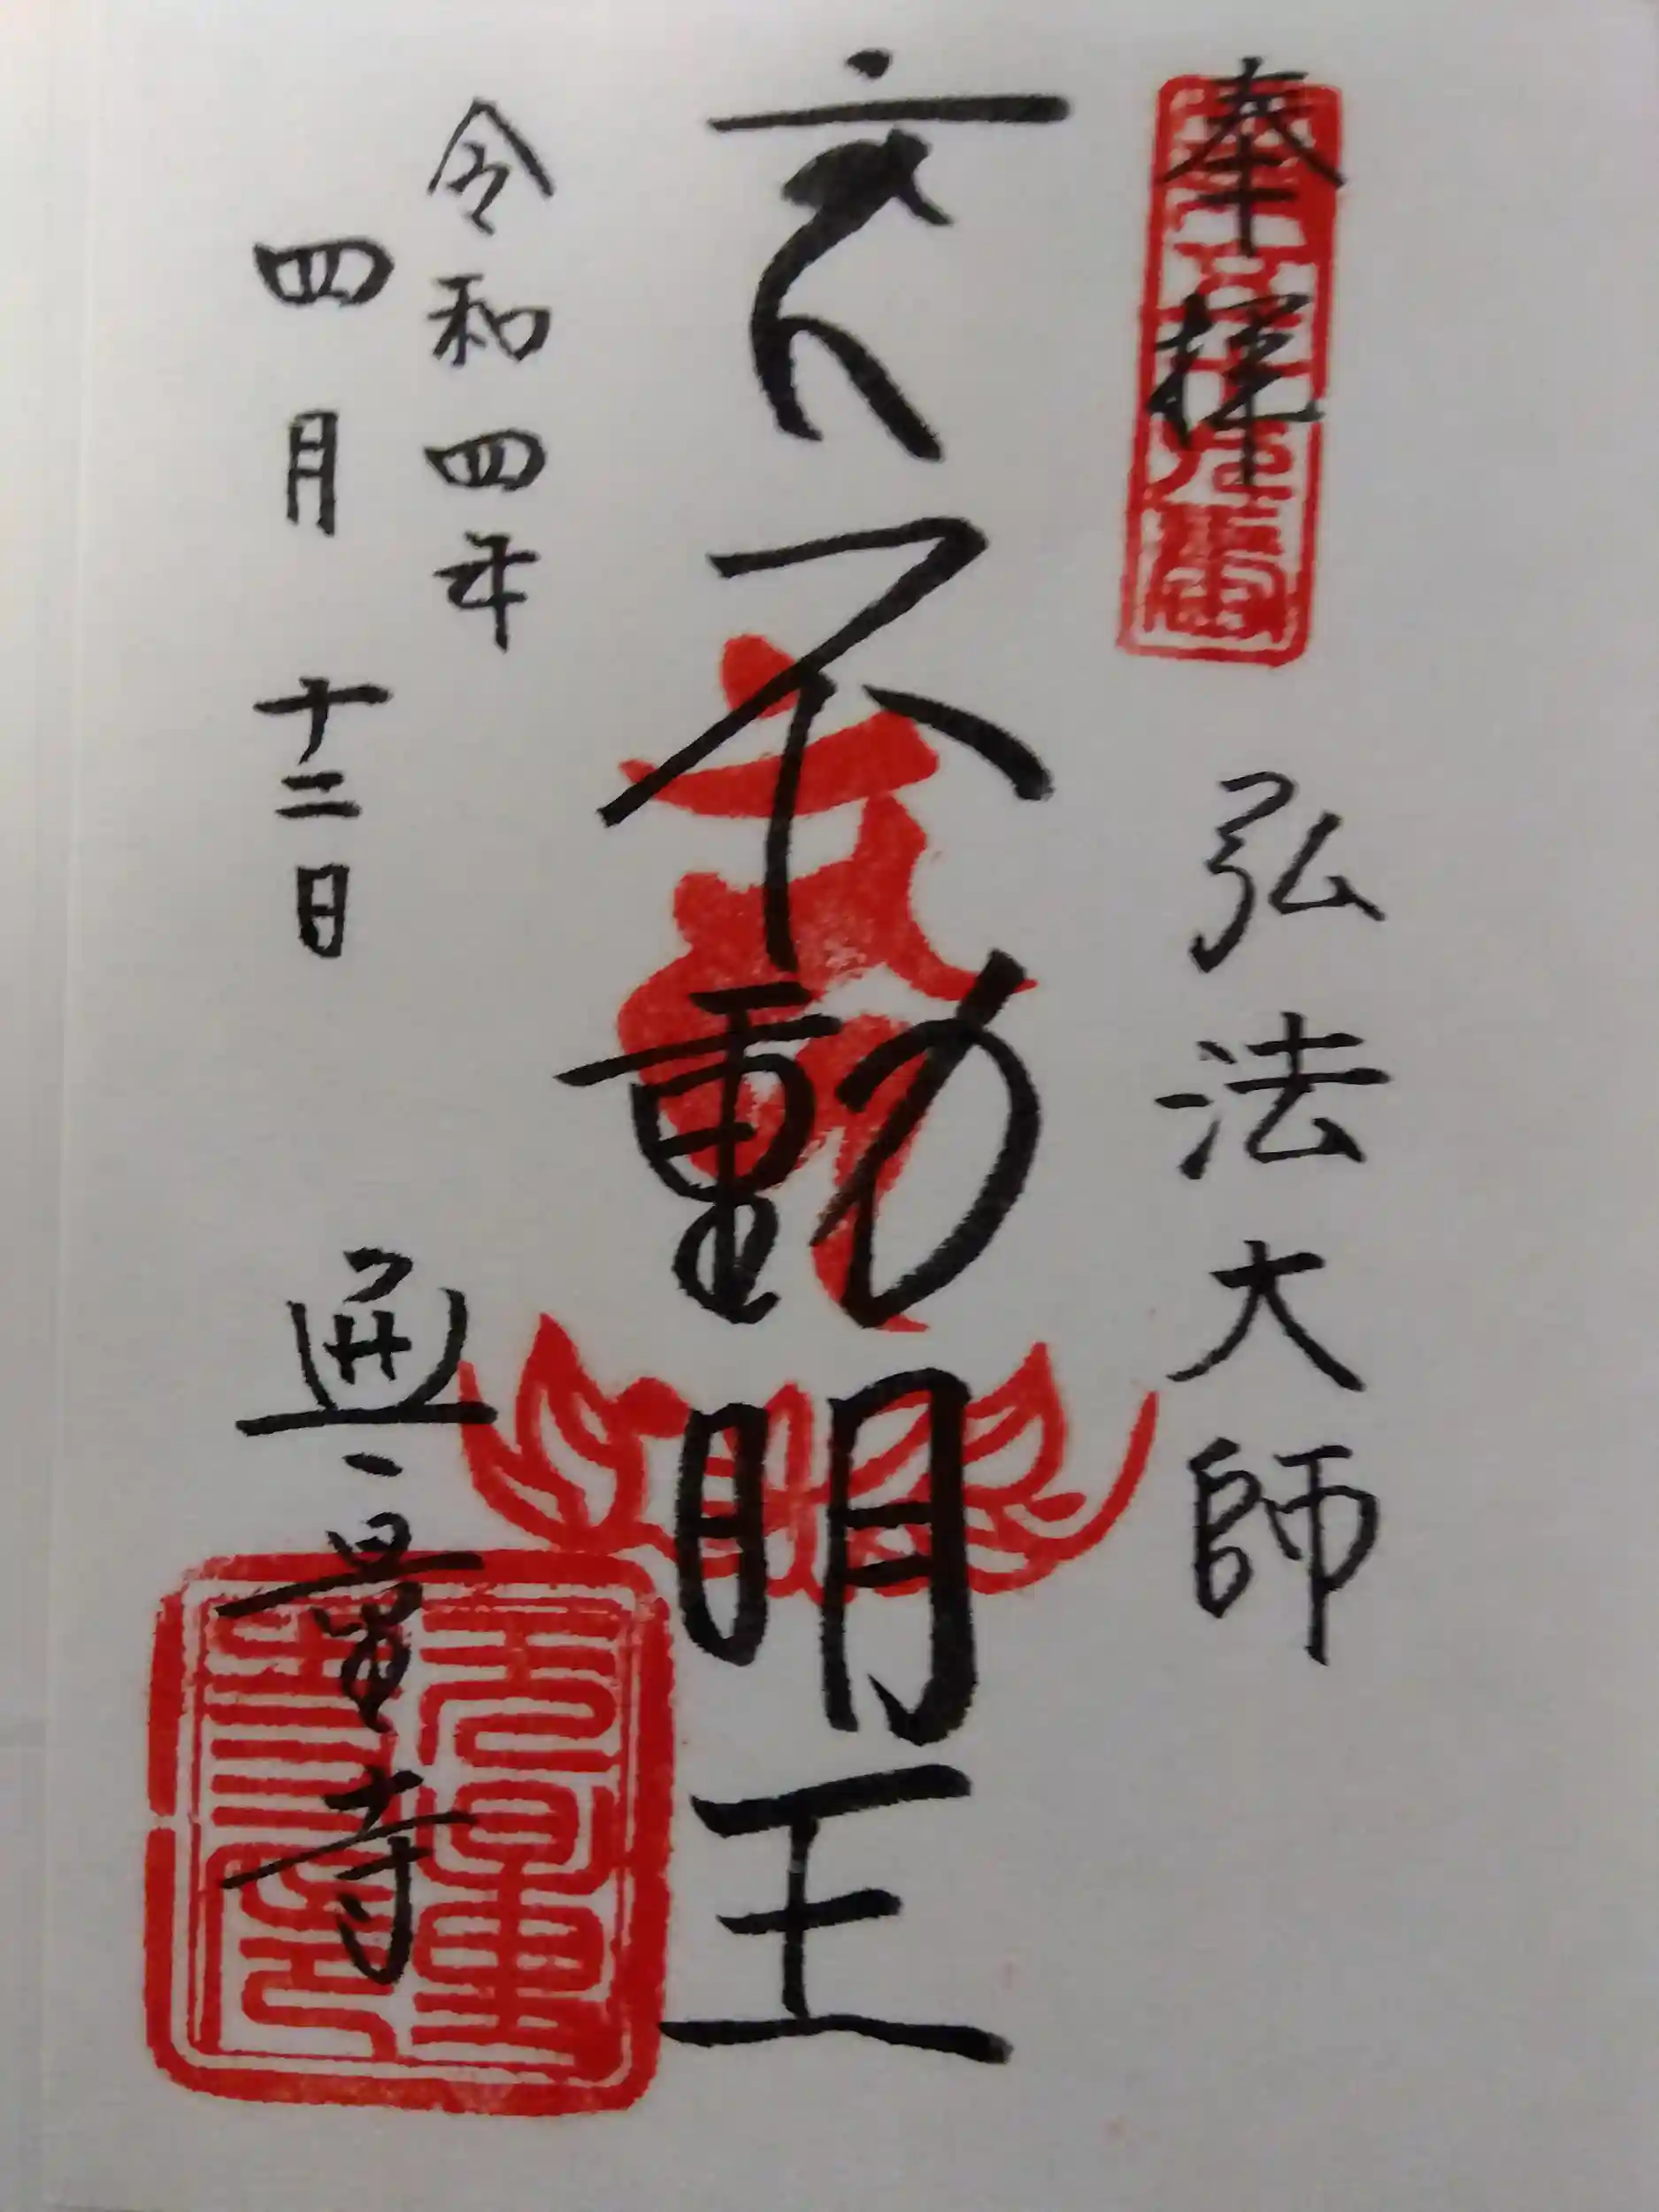 奉拝 弘法大師
不動明王
令和四年
四月十二日 無量寺